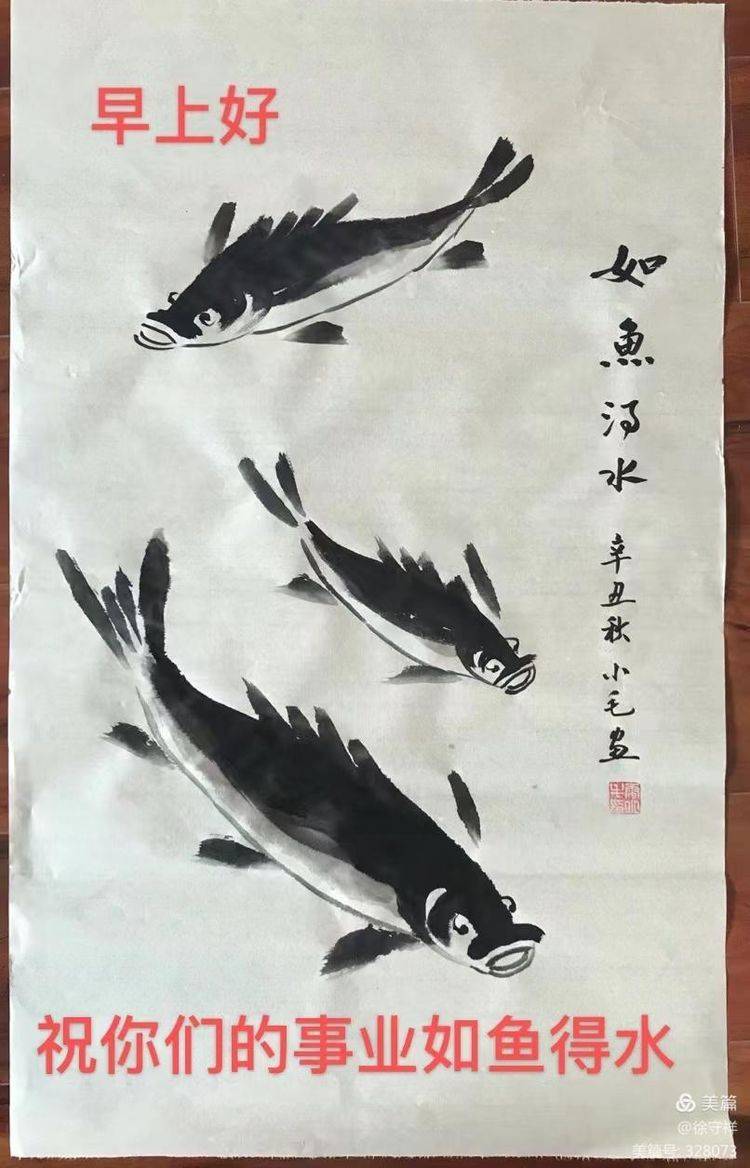 早上好
如魚得水
辛丑秋 小毛画
祝你们的事业如鱼得水
美篇
@徐守祥
美篇号: 328073